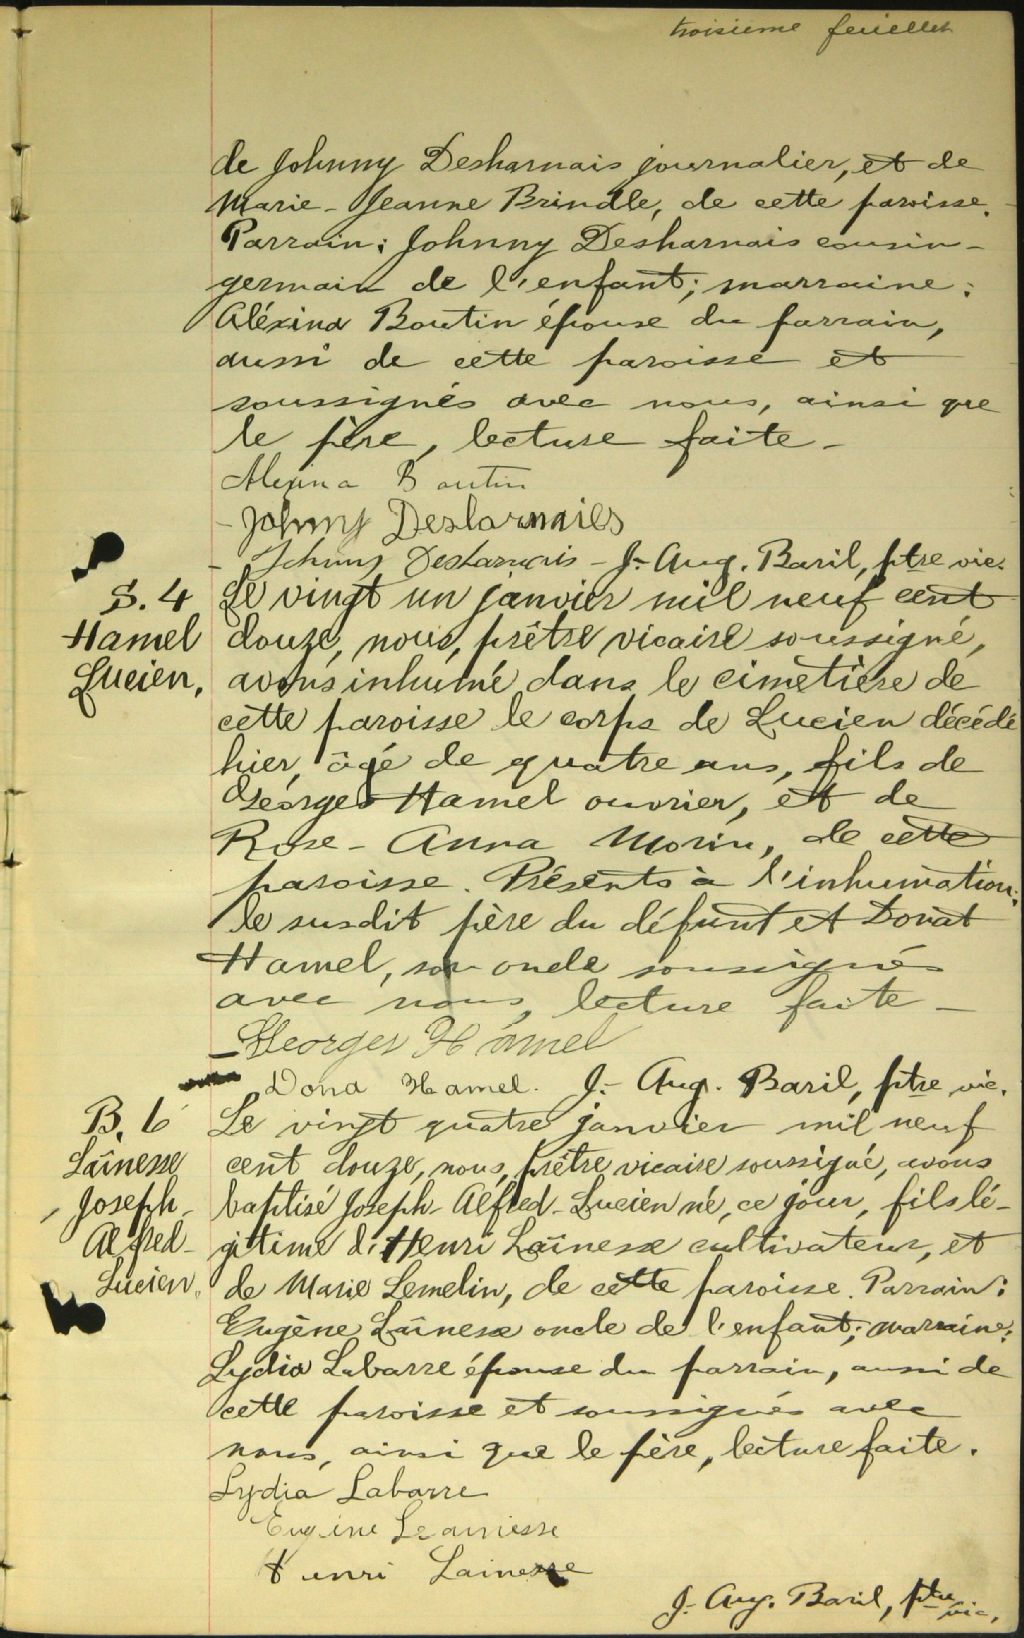 troisième feuillet
de Johnny Desharnais journalier, et de
Marie-Jeanne Brindle, de cette paroisse.
Parrain: Johnny Desharnais cousin-
germain de l'enfant; marraine:
Aléxina Boutin épouse du parrain,
aussi de cette paroisse et
soussignés avec nous, ainsi que
le père, lecture faite-
Alexina Boutin
- Johnny Desharnaies
- Johnny Desharnais - J.- Aug. Baril, ptre vic.
S. 4
Hamel
Lucien.
Le vingt un janvier mil neuf cent
douze, nous, prêtre vicaire soussigné,
avons inhumé dans le cimetière de
cette paroisse le corps de Lucien décédé
hier, âgé de quatre ans, fils de
Georges Hamel ouvrier, et de
Rose-Anna Morin, de cette
paroisse. Présents à l'inhumation:
le susdit père du défunt et Donat
Hamel, son oncle soussignés
avec nous, lecture faite -
Georges Hamel
Dona Hamel. J.- Aug. Baril, ptre vic.
B. 6
Laînesse
Joseph-
Alfred-
Lucien.
Le vingt quatre janvier mil neuf
cent douze, nous, prêtre vicaire soussigné, avons
baptisé Joseph-Alfred-Lucien né, ce jour, fils lé-
gitime d'Henri Laînesse cultivateur, et
de Marie Lemelin, de cette paroisse. Parrain:
Eugène Laînesse oncle de l'enfant; marraine:
Lydia Labarre épouse du parrain, aussi de
cette paroisse et soussignés avec
nous, ainsi que le père, lecture faite.
Lydia Labarre
Eugène Leainesse
Henri Lainesse
J.- Aug. Baril, ptre vic.